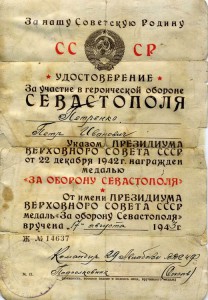 За нашу Советскую Родину
СС СР
УДОСТОВЕРЕНИЕ
За участие в героической обороне
СЕВАСТОПОЛЯ
Петренко
Петр Иванович
Указом ПРЕЗИДИУМА
ВЕРХОВНОГО СОВЕТА СССР
от 22 декабря 1942 г. награжден
медалью
«ЗА ОБОРОНУ СЕВАСТОПОЛЯ»
От имени ПРЕЗИДИУМА
ВЕРХОВНОГО СОВЕТА СССР
медаль «За Оборону Севастополя»
вручена августа 194 г.
Ж № 14637
Командир
Подполковник